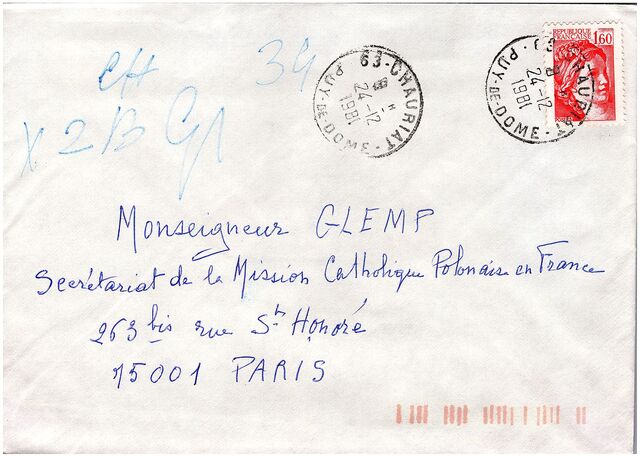 REPUBLIQUE FRANÇAISE
1,60
63-CHAURIAT
24-12
1981
PUY-DE-DOME
63-CHAURIAT
24-12
1981
PUY-DE-DOME
34
Monseigneur GLEMP
Secrétariat de la Mission Catholique Polonaise en France
263 bis rue St Honoré
75001 PARIS